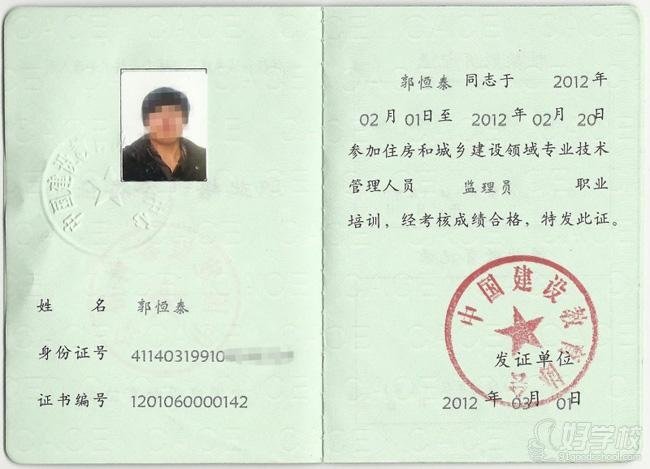 姓 名 郭恒泰
身份证号 41140319910
证书编号 1201060000142
郭恒泰 同志于 2012 年
02 月 01 日至 2012 年 02 月 20 日
参加住房和城乡建设领域专业技术
管理人员 监理员 职业
培训，经考核成绩合格，特发此证。
中国建设教育协会
发证单位
2012 年 03 月 01 日
好学校
91goodschool.com